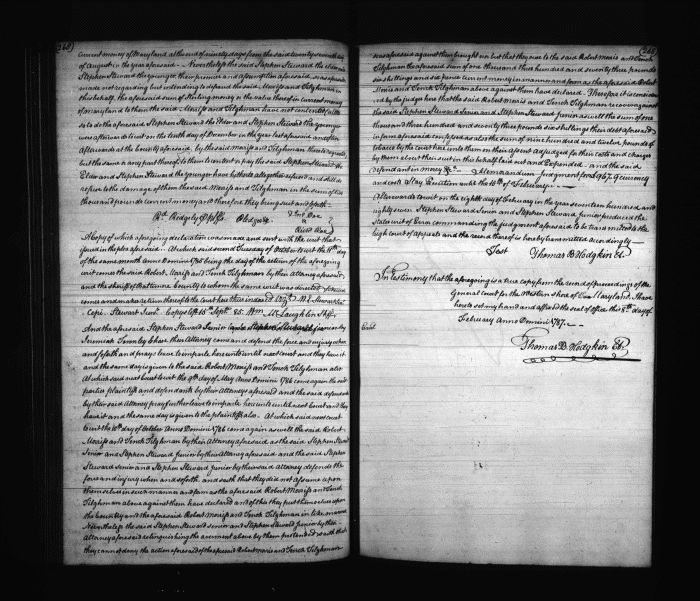 268
current money of Maryland at the end of ninety days from the said twenty second day
of August in the year aforesaid Nevertheless the said Stephen Steward the elder and
Stephen Steward the younger their promise and assumption aforesaid so as aforesaid
made not regarding but intending to defraud the said Moriss and Tilghman in
this behalf the aforesaid sum of Sterling money or the value thereof in current money
of maryland to them the said Moriss and Tilghman have not contented altho
so to do the aforesaid Stephen Steward the Elder and Stephen Steward the younger
were afterwards to wit on the tenth day of December in the year last aforesaid and often
afterwards at the County aforesaid by the said Moriss and Tilghman thereto required
but the same or any part thereof to them to content or pay the said Stephen Steward the
Elder and Stephen Steward the younger have hitherto altogether refused and still do
refuse to the damage of them the said Moriss and Tilghman in the sum of two
thousand pounds current money and therefore they bring suit and so forth
Rd. Ridgely Pltffs Pledges &c. John Doe
Richd Roe
A Copy of which aforegoing declaration was made and sent with the writ that
At which said second Tuesday of October to wit the 11th day
of the same month Anno Domini 1785 being the day of the return of the aforegoing
writ comes the said Robert Moriss and Tench Tilghman by their Attorney aforesaid
and the sheriff of Baltimore County to whom the same writ was directed likewise
comes and makes return thereof to the Court here thus indorsed
Copi. Steward Junr. Copy left 15 Septr. 85. Wm McLaughlin Shff.
And the aforesaid Stephen Steward Senior and Stephen Steward junior by
Jeremiah Townley Chase their Attorney come and defend the force and injury when
and so forth and pray leave to imparle hereunto until next court and they have it
and the same day is given to the said Robert Moriss and Tench Tilghman also
At which said next Court to wit the 9th day of May Anno Domini 1786 come again the said
parties plaintiffs and defendants by their Attorneys aforesaid and the said defendants
by their said Attorney pray further leave to imparle hereunto until next Court and they
have it and the same day is given to the plaintiffs also. At which said next Court
to wit the 10th day of October Anno Domini 1786 come again as well the said Robert
Moriss and Tench Tilghman by their Attorney aforesaid as the said Stephen Steward
Senior and Stephen Steward Junior by their Attorney aforesaid and the said Stephen
Steward senior and Stephen Steward junior by their said Attorney defends the
force and injury when and so forth and saith that they did not assume upon
themselves in such manner and form as the aforesaid Robert Moriss and Tench
Tilghman above against them have declared and of this they put themselves upon
the Country and the aforesaid Robert Moriss and Tench Tilghman in like manner
Nevertheless the said Stephen Steward senior and Stephen Steward junior by their
Attorney aforesaid relinquishing the averment above by them pretended saith that
they cannot deny the action aforesaid of the aforesaid Robert Moriss and Tench Tilghman
was aforesaid against them brought nor but that they owe to the said Robert Moriss and Tench
Tilghman the aforesaid sum of one thousand three hundred and seventy three pounds
six shillings and six pence current money in manner and form as the aforesaid Robert
Moriss and Tench Tilghman above against them have declared. Therefore it is considered
by the judges here that the said Robert Moriss and Tench Tilghman recover against
the said Stephen Steward Senior and Stephen Steward Junior as well the sum of one
thousand three hundred and seventy three pounds six shillings their debt aforesaid
in form aforesaid confessed as also the sum of nine hundred and twelve pounds of
tobacco by the court here unto them on their assent adjudged for their costs and charges
by them about their suit in this behalf laid out and expended and the said
defendants in money &c. Memorandum judgment for
and costs Stay Execution until the 10th of February
Afterwards to wit on the eighth day of February in the year seventeen hundred and
eighty seven Stephen Steward Senior and Stephen Steward Junior produced the
State writ of Error commanding the judgment aforesaid to be transmitted to the
high court of Appeals and the record thereof is hereby transmitted accordingly
Test Thomas B Hodgkin Clk.
In Testimony that the aforegoing is a true copy from the record of proceedings of the
General Court for the Western Shore of Maryland I have
hereto set my hand and affixed the seal of office this 8th day of
February Anno Domini 1787
Thomas B Hodgkin Clk.